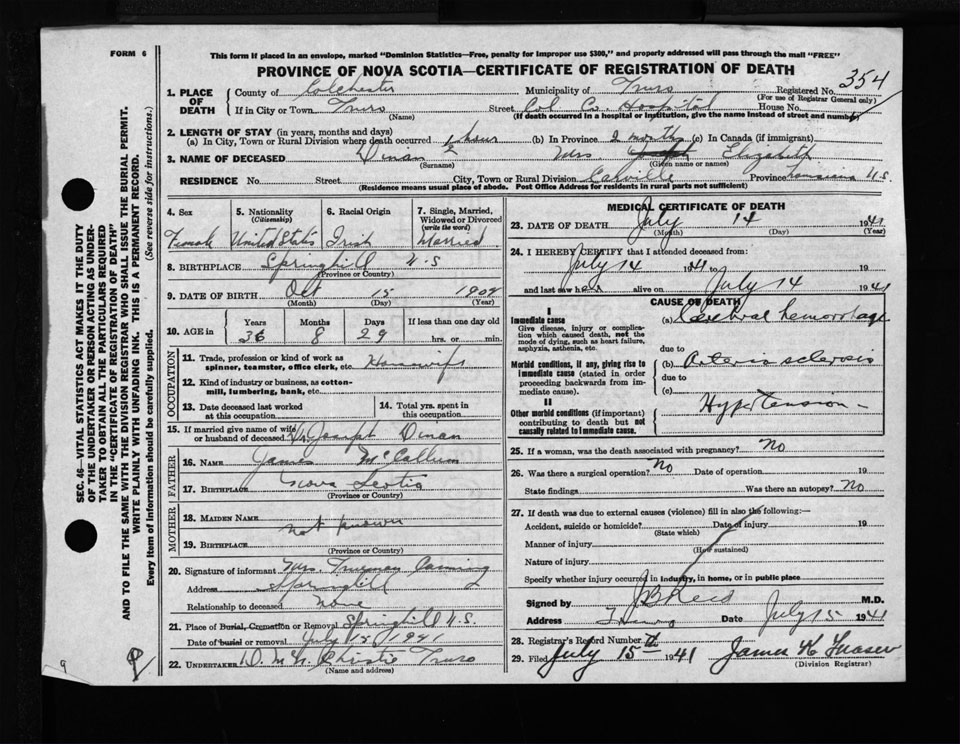 FORM 6
This form if placed in an envelope, marked "Dominion Statistics—Free, penalty for improper use $300," and properly addressed will pass through the mail "FREE"
PROVINCE OF NOVA SCOTIA—CERTIFICATE OF REGISTRATION OF DEATH
354
1. PLACE OF DEATH County of Colchester Municipality of Truro Registered No.
(For use of Registrar General only)
If in City or Town Truro Street Col. Co. Hospital House No.
(Name) (If death occurred in a hospital or institution, give the name instead of street and number)
2. LENGTH OF STAY (in years, months and days)
(a) In City, Town or Rural Division where death occurred 1 hour (b) In Province 2 months (c) In Canada (if immigrant)
3. NAME OF DECEASED Dinan Mrs Joseph Elizabeth
(Surname) (Given name or names)
RESIDENCE No. Street City, Town or Rural Division Carville Province Louisiana U.S.
(Residence means usual place of abode. Post Office Address for residents in rural parts not sufficient)
4. Sex 5. Nationality (Citizenship) 6. Racial Origin 7. Single, Married, Widowed or Divorced (write the word)
Female United States Irish Married
8. BIRTHPLACE Springhill N.S
(Province or Country)
9. DATE OF BIRTH Oct 15 1904
(Month) (Day) (Year)
10. AGE in Years Months Days If less than one day old
36 8 29 hrs. or min.
OCCUPATION
11. Trade, profession or kind of work as spinner, teamster, office clerk, etc. Housewife
12. Kind of industry or business, as cotton-mill, lumbering, bank, etc.
13. Date deceased last worked at this occupation
14. Total yrs. spent in this occupation
15. If married give name of wife or husband of deceased Joseph Dinan
FATHER
16. NAME James McCallum
17. BIRTHPLACE Nova Scotia
(Province or Country)
MOTHER
18. MAIDEN NAME not known
19. BIRTHPLACE
(Province or Country)
20. Signature of informant Mrs. Truman Canning
Address Springhill
Relationship to deceased None
21. Place of Burial, Cremation or Removal Springhill N.S.
Date of burial or removal July 15 1941
22. UNDERTAKER D. McK. Christie Truro
(Name and address)
MEDICAL CERTIFICATE OF DEATH
23. DATE OF DEATH July 14 1941
(Month) (Day) (Year)
24. I HEREBY CERTIFY that I attended deceased from:
July 14 1941 to 19
and last saw her alive on July 14 1941
CAUSE OF DEATH
I
Immediate cause
Give disease, injury or complication which caused death, not the mode of dying, such as heart failure, asphyxia, asthenia, etc.
(a) Cerebral hemorrhage
due to
Morbid conditions, if any, giving rise to immediate cause (stated in order proceeding backwards from immediate cause).
(b) Arteriosclerosis
due to
(c)
II
Other morbid conditions (if important) contributing to death but not causally related to immediate cause.
Hypertension
25. If a woman, was the death associated with pregnancy? No
26. Was there a surgical operation? No Date of operation 19
State findings Was there an autopsy? No
27. If death was due to external causes (violence) fill in also the following:—
Accident, suicide or homicide? Date of injury 19
(State which)
Manner of injury
(How sustained)
Nature of injury
Specify whether injury occurred in industry, in home, or in public place
Signed by J B Reid M.D.
Address Truro Date July 15 1941
28. Registrar's Record Number
29. Filed July 15th 1941 James K Fraser
(Division Registrar)
SEC. 46—VITAL STATISTICS ACT MAKES IT THE DUTY
OF THE UNDERTAKER OR PERSON ACTING AS UNDER-
TAKER TO OBTAIN ALL THE PARTICULARS REQUIRED
IN THE "CERTIFICATE OF REGISTRATION OF DEATH"
AND TO FILE THE SAME WITH THE DIVISION REGISTRAR WHO SHALL ISSUE THE BURIAL PERMIT.
WRITE PLAINLY WITH UNFADING INK. THIS IS A PERMANENT RECORD.
Every item of information should be carefully supplied. (See reverse side for instructions.)
9